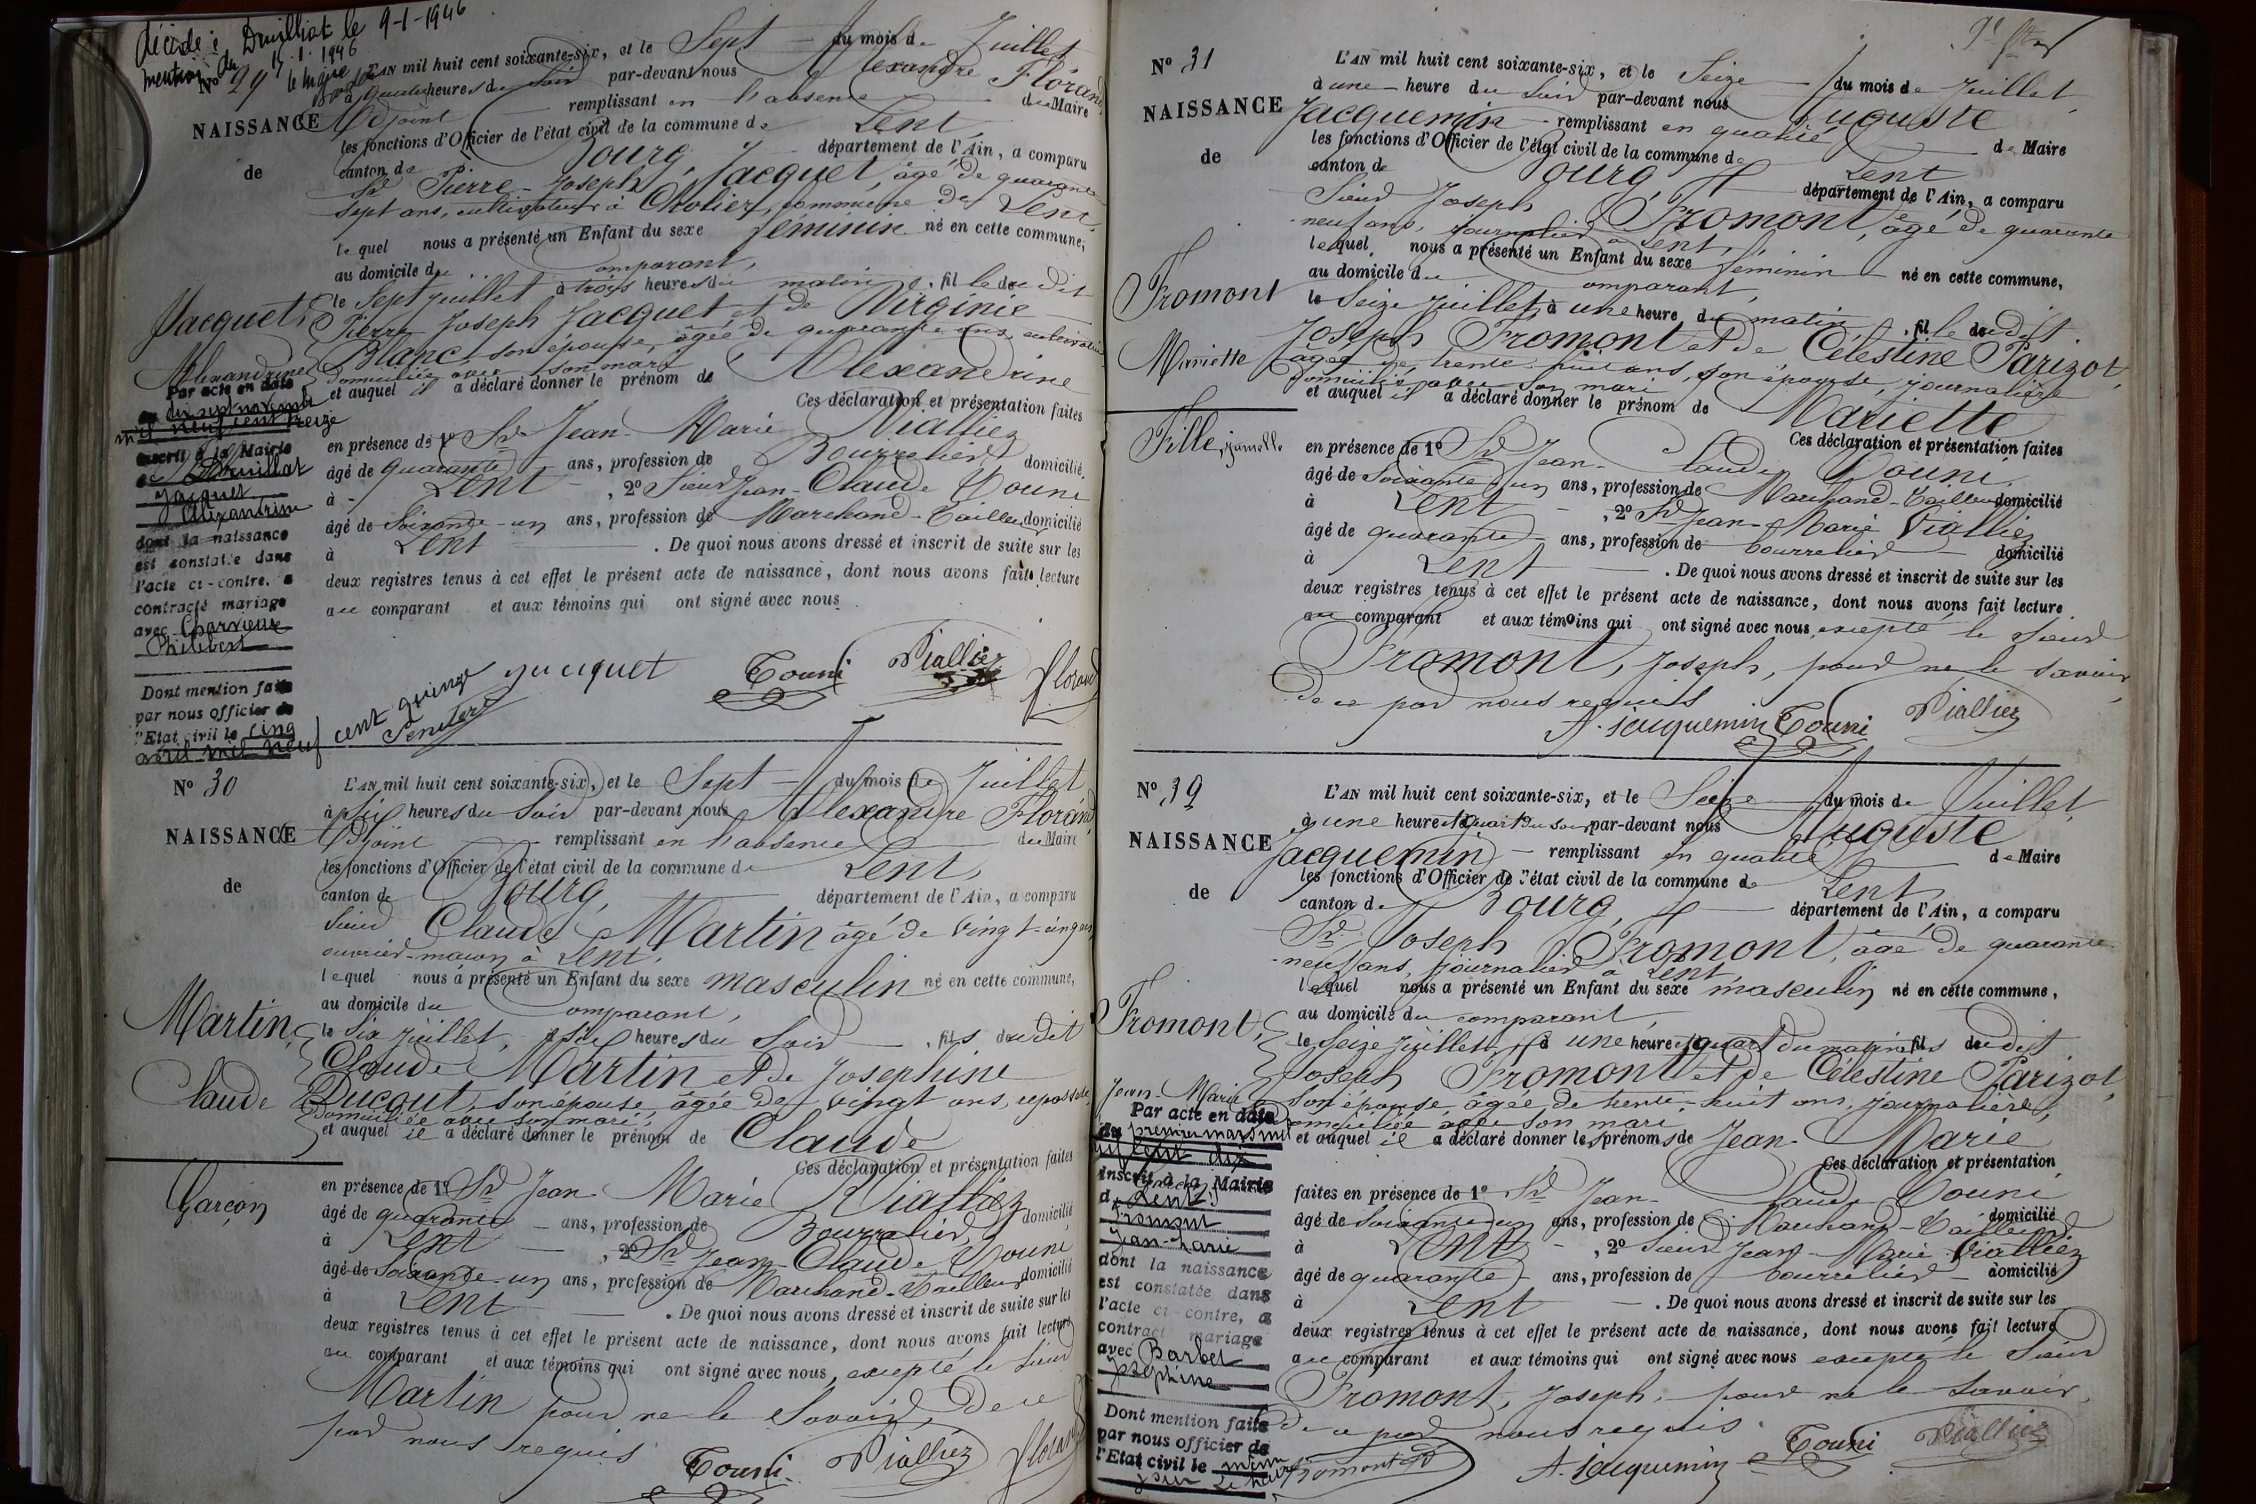 décédé à Druillat le 9-1-1946
mention du 15.1.1946
le maire
N° 29
NAISSANCE
de
Jacquet,
Alexandrine
Par acte en date
du sept novembre
mil neuf cent treize
inscrit à la Mairie
de Druillat
Jacquet
Alexandrine
dont la naissance
est constatée dans
l'acte ci-contre, a
contracté mariage
avec Charvieux
Philibert
Dont mention faite
par nous officier de
l'Etat civil le cinq
avril mil neuf cent quinze
L'AN mil huit cent soixante-six, et le Sept du mois de Juillet
à quatre heures du soir par-devant nous Alexandre Florand
Adjoint remplissant en l'absence du Maire
les fonctions d'Officier de l'état civil de la commune de Lent
canton de Bourg, département de l'Ain, a comparu
Sr. Pierre-Joseph Jacquet, âgé de quarante
sept ans, cultivateur à Cholier, commune de Lent,
lequel nous a présenté un Enfant du sexe féminin né en cette commune,
au domicile du comparant,
le Sept juillet à trois heures du matin, fille dudit
Pierre Joseph Jacquet et de Virginie
Blanc, son épouse, âgée de quarante ans, cultivatrice
domiciliée avec son mari
et auquel il a déclaré donner le prénom de Alexandrine
Ces déclaration et présentation faites
en présence de 1° Sr. Jean-Marie Vialliez
âgé de quarante ans, profession de Bourrelier domicilié
à Lent, 2° Sieur Jean-Claude Touni
âgé de Soixante-un ans, profession de Marchand-Tailleur domicilié
à Lent. De quoi nous avons dressé et inscrit de suite sur les
deux registres tenus à cet effet le présent acte de naissance, dont nous avons fait lecture
au comparant et aux témoins qui ont signé avec nous
Jacquet Touni Vialliez Florand
N° 30
NAISSANCE
de
Martin,
Claude
Garçon
L'AN mil huit cent soixante-six, et le Sept du mois de Juillet
à six heures du soir par-devant nous Alexandre Florand
Adjoint remplissant en l'absence du Maire
les fonctions d'Officier de l'état civil de la commune de Lent,
canton de Bourg, département de l'Ain, a comparu
Sieur Claude Martin âgé de vingt-cinq ans
ouvrier-maçon à Lent,
lequel nous a présenté un Enfant du sexe masculin né en cette commune,
au domicile du comparant,
le Six juillet, à six heures du soir, fils dudit
Claude Martin et de Josephine
Ducout, son épouse âgée de vingt ans, repasseuse
domiciliée avec son mari,
et auquel il a déclaré donner le prénom de Claude
Ces déclaration et présentation faites
en présence de 1° Sr. Jean Marie Vialliez
âgé de quarante ans, profession de Bourrelier, domicilié
à Lent, 2° Sr. Jean-Claude Touni
âgé de Soixante-un ans, profession de Marchand-Tailleur domicilié
à Lent. De quoi nous avons dressé et inscrit de suite sur les
deux registres tenus à cet effet le présent acte de naissance, dont nous avons fait lecture
au comparant et aux témoins qui ont signé avec nous, excepté le Sieur
Martin pour ne le savoir, de ce
par nous requis
Touni Vialliez Florand
N° 31
NAISSANCE
de
Fromont
Mariette
Fille, jumelle
L'AN mil huit cent soixante-six, et le Seize du mois de Juillet,
à une heure du soir par-devant nous Auguste
Jacquemin remplissant en qualité de Maire
les fonctions d'Officier de l'état civil de la commune de Lent
canton de Bourg, département de l'Ain, a comparu
Sieur Joseph Fromont, âgé de quarante
neuf ans, journalier à Lent,
lequel nous a présenté un Enfant du sexe féminin né en cette commune,
au domicile du comparant,
le Seize juillet, à une heure du matin, fille dudit
Joseph Fromont et de Célestine Parizot,
âgée de trente-huit ans, son épouse, journalière
domiciliée avec son mari
et auquel il a déclaré donner le prénom de Mariette
Ces déclaration et présentation faites
en présence de 1° Sr. Jean-Claude Touni
âgé de Soixante-un ans, profession de Marchand-Tailleur domicilié
à Lent, 2° Sr. Jean-Marie Vialliez
âgé de quarante ans, profession de bourrelier domicilié
à Lent. De quoi nous avons dressé et inscrit de suite sur les
deux registres tenus à cet effet le présent acte de naissance, dont nous avons fait lecture
au comparant et aux témoins qui ont signé avec nous, excepté le Sieur
Fromont, Joseph, pour ne le savoir,
de ce par nous requis
A. Jacquemin Touni Vialliez
N° 32
NAISSANCE
de
Fromont,
Jean-Marie
Par acte en date
du premier mars mil
neuf cent dix
inscrit à la Mairie
de Lent
Fromont
Jean-Marie
dont la naissance
est constatée dans
l'acte ci-contre, a
contracté mariage
avec Barbet
Joséphine
Dont mention faite
par nous officier de
l'Etat civil le même
jour Le Maire
L'AN mil huit cent soixante-six, et le Seize du mois de Juillet,
à une heure et quart du soir par-devant nous Auguste
Jacquemin remplissant en qualité de Maire
les fonctions d'Officier de l'état civil de la commune de Lent
canton de Bourg, département de l'Ain, a comparu
Sr. Joseph Fromont, âgé de quarante-
neuf ans, journalier à Lent,
lequel nous a présenté un Enfant du sexe masculin né en cette commune,
au domicile du comparant,
le Seize juillet, à une heure et quart du matin fils dudit
Joseph Fromont et de Célestine Parizot,
son épouse âgée de trente-huit ans, journalière,
domiciliée avec son mari
et auquel il a déclaré donner les prénoms de Jean-Marie
Ces déclaration et présentation
faites en présence de 1° Sr. Jean-Claude Touni
âgé de Soixante-un ans, profession de Marchand-Tailleur domicilié
à Lent, 2° Sieur Jean-Marie Vialliez
âgé de quarante ans, profession de bourrelier domicilié
à Lent. De quoi nous avons dressé et inscrit de suite sur les
deux registres tenus à cet effet le présent acte de naissance, dont nous avons fait lecture
au comparant et aux témoins qui ont signé avec nous excepté le Sieur
Fromont, Joseph, pour ne le savoir,
de ce par nous requis
A. Jacquemin Touni Vialliez